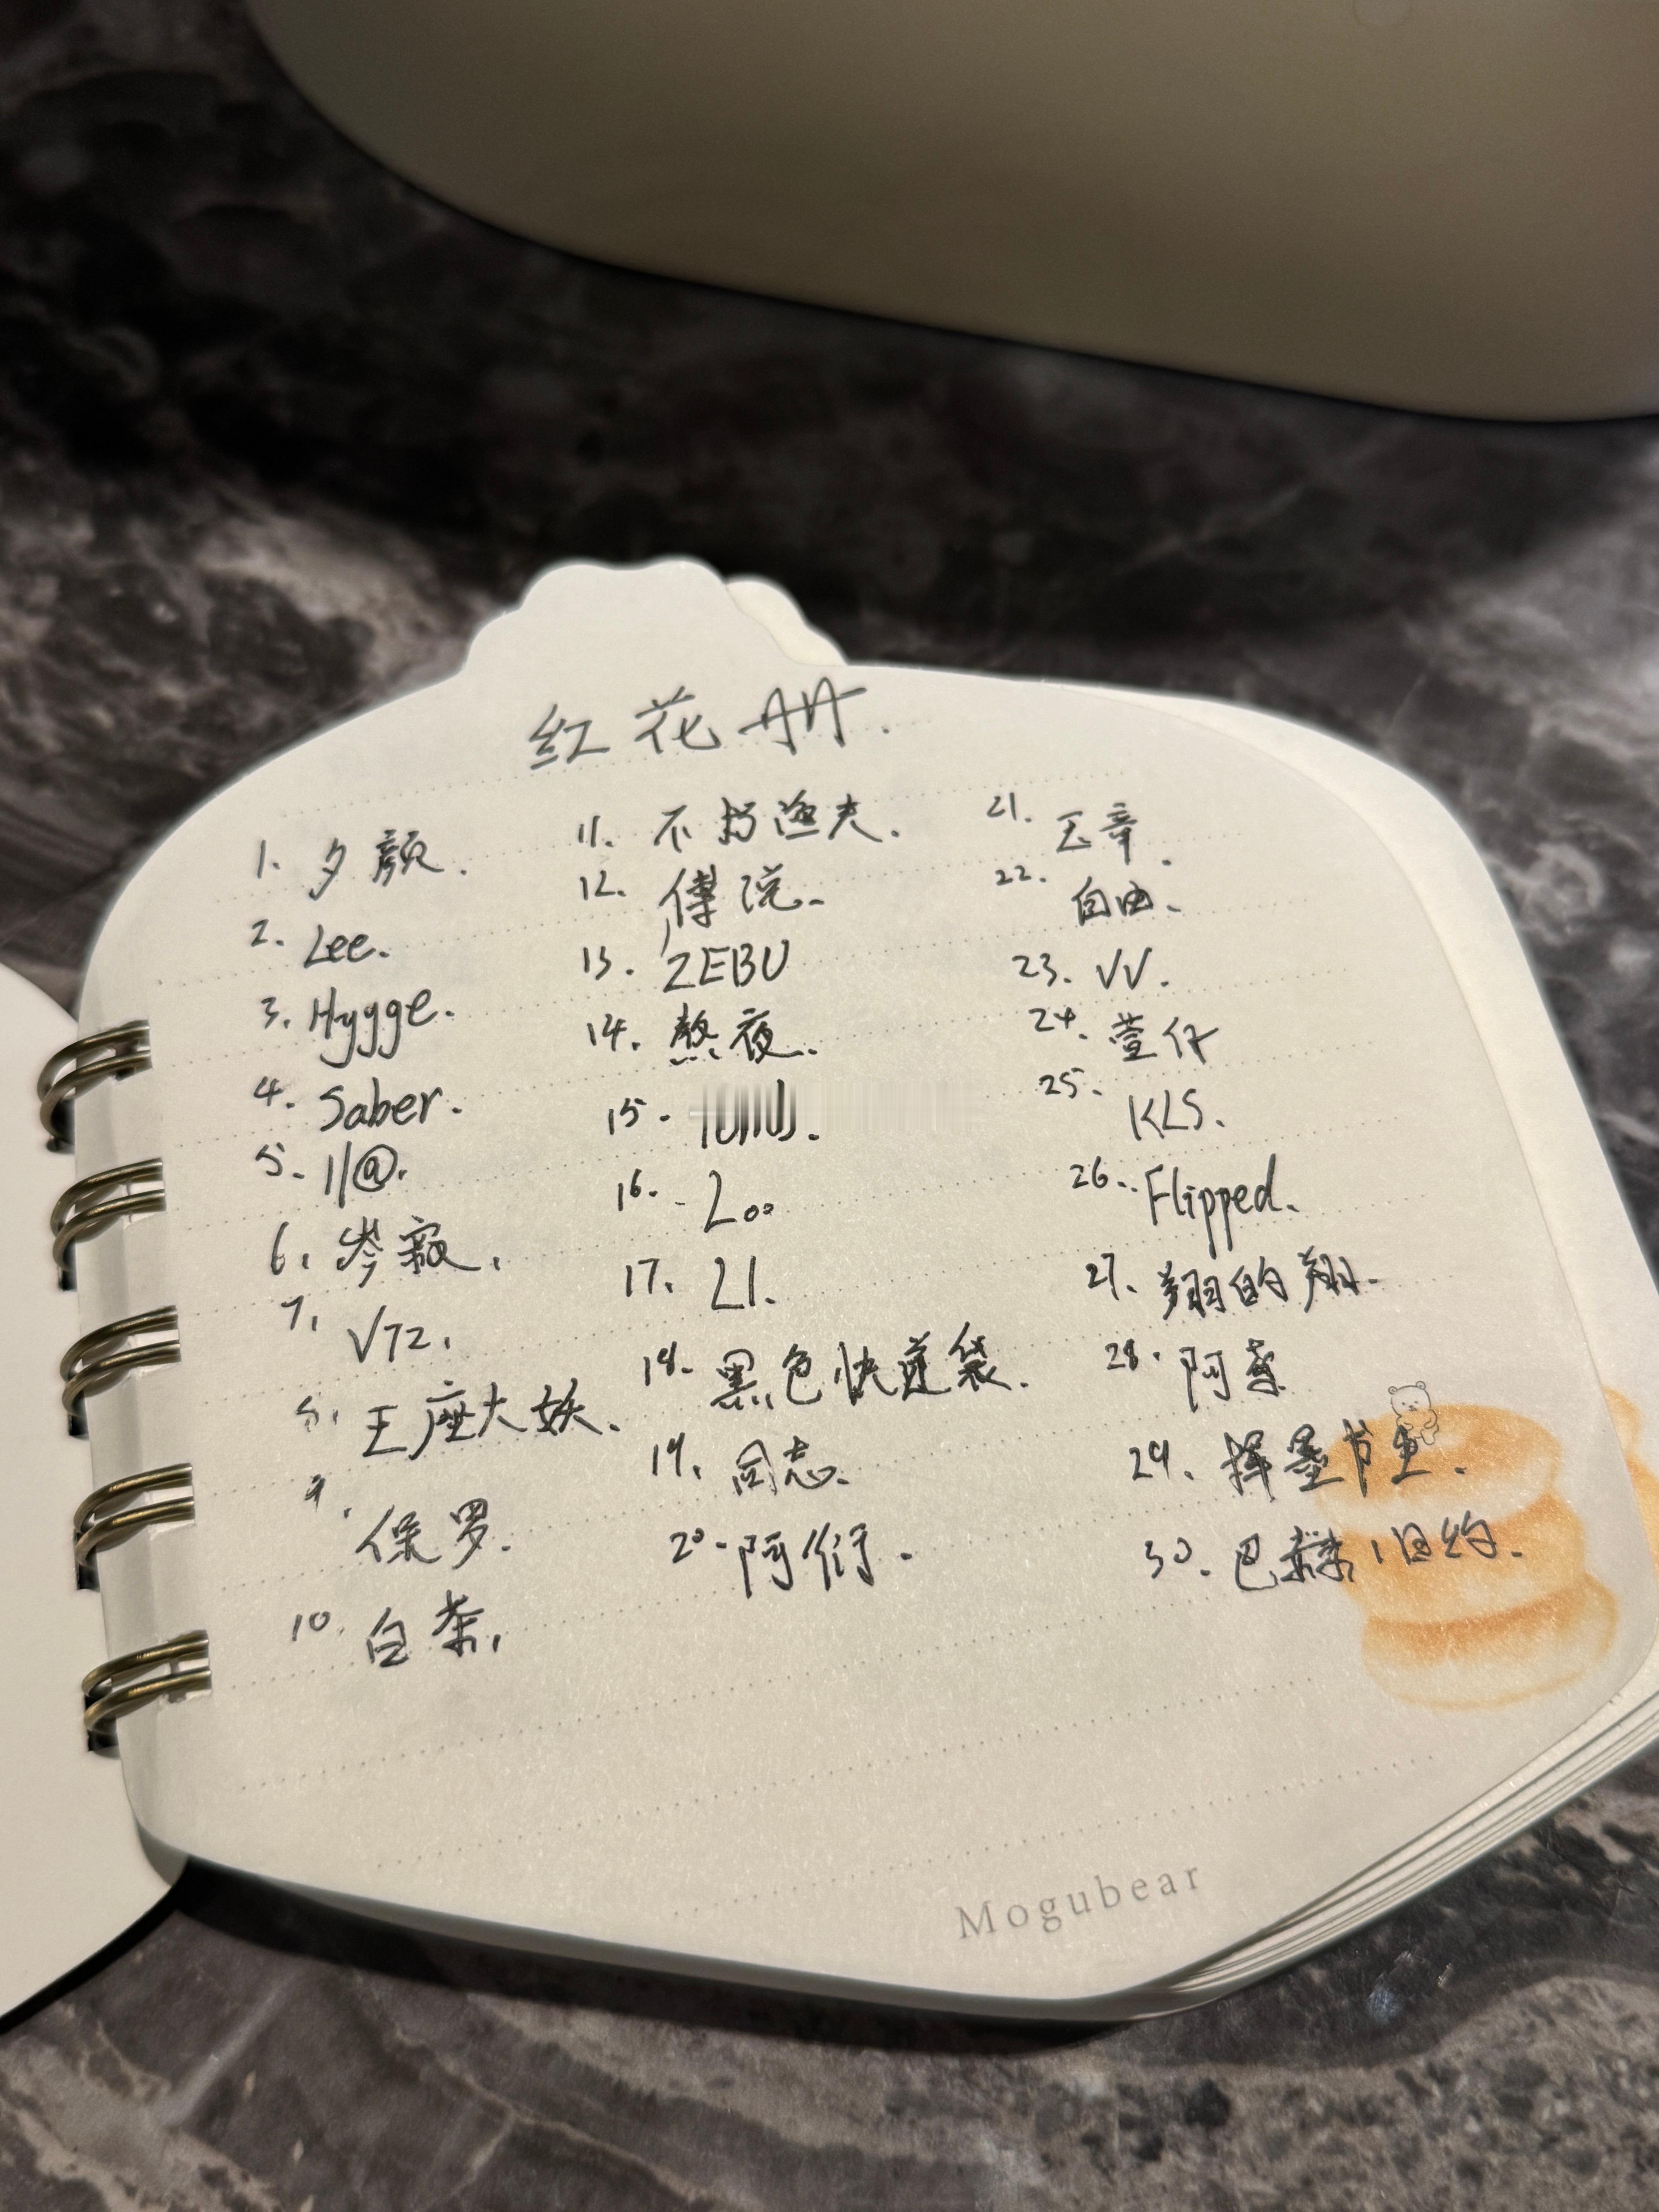 红花册.
1. 夕颜.
2. Lee.
3. Hygge.
4. Saber.
5. 1/@.
6. 岑寂.
7. V72.
8. 王座大妖.
9. 保罗.
10. 白茶.
11. 不捞渔夫.
12. 傅说.
13. ZEBU
14. 熬夜.
15.
16. Loo
17. LI.
18. 黑色快递袋.
19. 同志.
20. 阿们.
21. 玉章.
22. 自由.
23. VV.
24. 萱仔
25. KLS.
26. Flipped.
27. 翔的翔.
28. 阿
29. 挥墨书
30. 巴赫旧约.
Mogubear